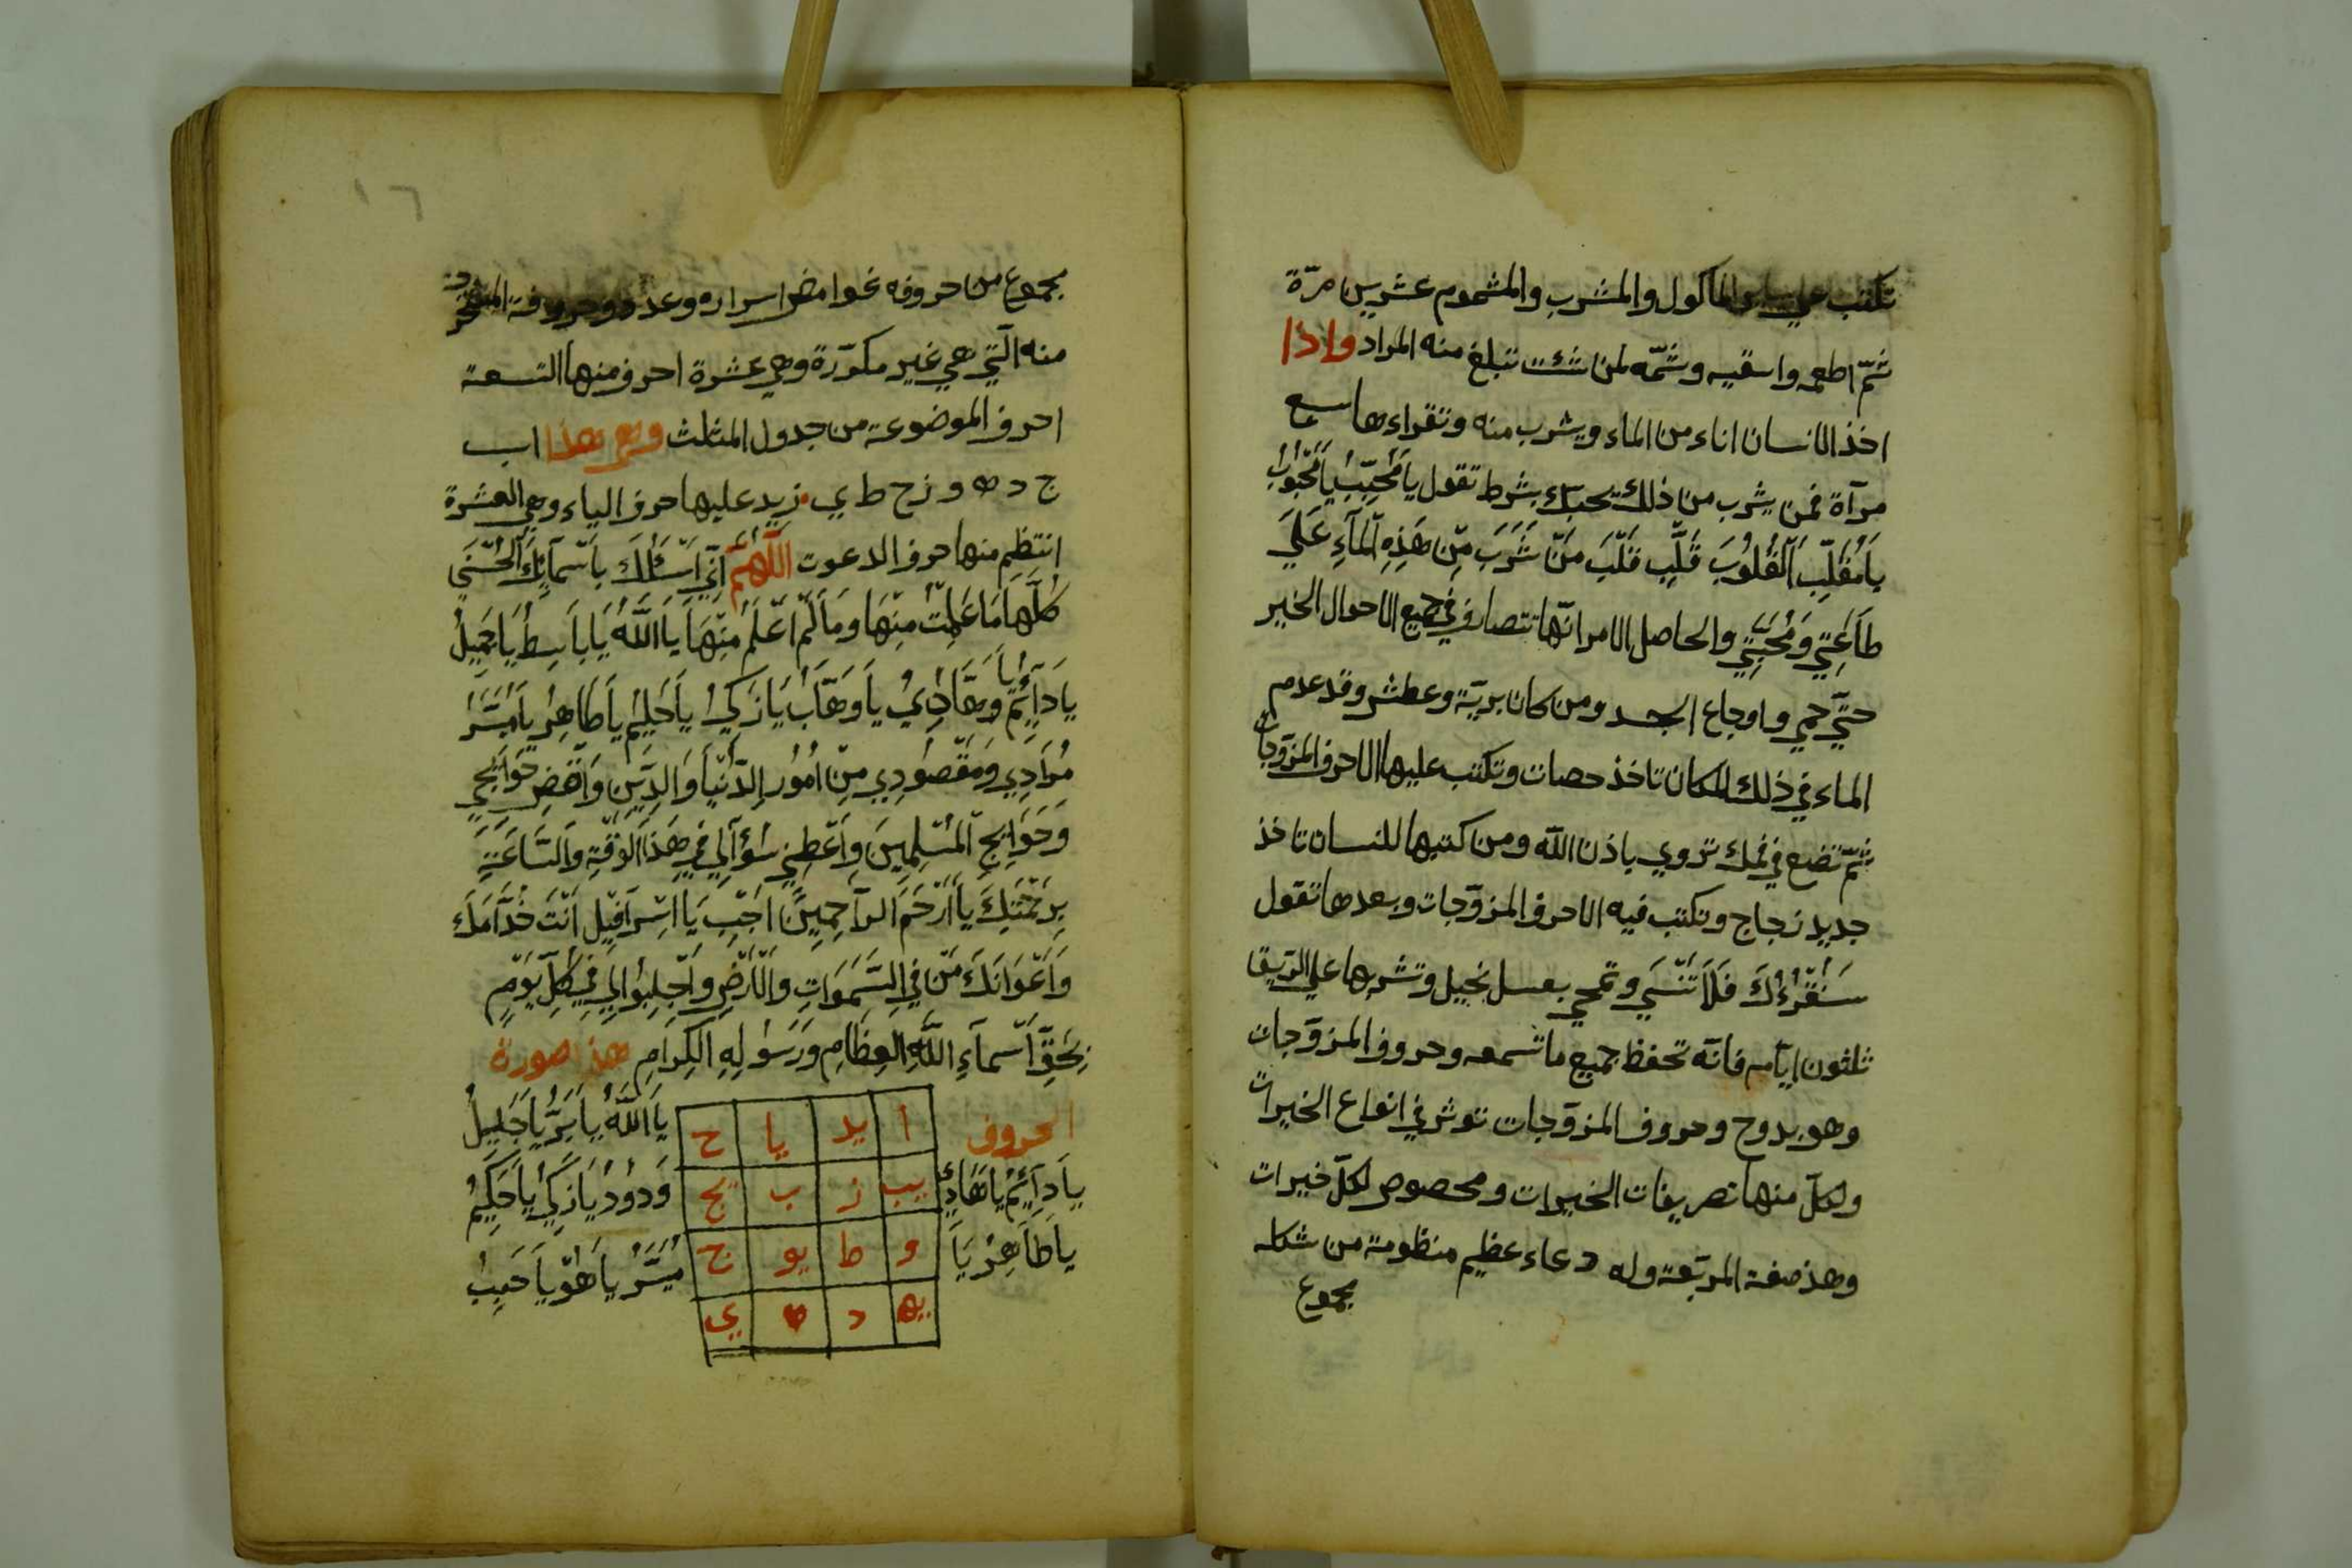 تكتب علي ساير الماكول والمشرب والمشموم عشرين مرّة
ثمّ اطعم واسقيه وشمّه لمن شئت تبلغ منه المراد واذا
اخذ الانسان اناء من الماء ويشرب منه وتقراءها سبع
مرآة فمن يشرب من ذلك يحبك بشرط تقول يَا مُحَبِّبُ يَا مَحْبُوبُ
يَا مُقَلِّبَ الْقُلُوبَ قَلِّبِ قَلْبَ مَنْ شَرَبَ مِنْ هَذِهِ الْمَاءِ عَلَي
طَاعَتِي وَمُحَبَتِي والحاصل الامر انّها تتصارف في جميع الاحوال الخير
حتّي حمي واوجاع الجسد ومن كان بريّة وعطش وقد عدم
الماء في ذلك المكان تاخذ حصات وتكتب عليها الاحرف المزوّجات
ثمّ تضع في فمك تروي باذن اللّه ومن كتبها للنسان تاخذ
جديد زجاج وتكتب فيه الاحرف المزوّجات وبعدها تقول
سَنُقْرُءُكَ فَلَا تَنْسَي وتمحي بعسل نحيل وتشربها علي الريق
ثلثون ايّام فانّه تحفظ جميع ما تسمعه وحروف المزوّجات
وهو بدوح وحروف المزوّجات توثر في انواع الخيرات
ولكلّ منها تصريفات الخيرات ومخصوص لكلّ خيرات
وهذ صفة المربّعة وله دعاء عظيم منظومة من شكله
مجموع
١٦
مجموع من احروفه غوامض اسراره وعدد وحروفة
منه الّتي هي غير مكوّرة وهي عشرة احرف منها التسعة
احرف الموضوعة من جدول المثلث وهي هذا ا ب
ج د ه و ز ح ط ي زيد عليها حرف الياء وهي العشرة
انتظم منها حرف الدعوت اللّهمّ اَنّي اَسْئَلُكَ بِاَسْمَآئِكَ الْحُسْنَي
كُلِّهَا مَا عَلِمْتُ مِنْهَا وَمَا لَمْ اَعْلَمُ مِنْهَا يَا اَللّهُ يَا بَاسِطُ يَا جَمِيلُ
يَا دَآئِمُ يَا هَادِيُ يَا وَهَّابُ يَا زَكِيُ يَا حَلِيمُ يَا طَاهِرُ يَا مُيَسِّرُ
مُرَادِي وَمَقْصُودِي مِنْ اُمُورِ الدُّنْيَا وَالدِّينِ وَاقْضِ حَوَائِجِي
وَحَوَائِجِ الْمُسْلِمِينَ وَاَعْطِنِي سُؤَالِي فِي هَذَ الْوَقْتِ وَالسَّاعَةِ
بِرَحْمَتِكَ يَا اَرْحَمَ الرَّاحِمِينَ اَجِبْ يَا اِسْرَافِيْل اَنْتَ خُدَّامَكَ
وَاَعْوَانَكَ مَنْ فِي السَّمَوَاتِ وَالْاَرْضِ وَاجْلِبُوا لِي فِي كُلِّ يَوْمٍ
بِحَقِّ اَسْمَآءِ اللّهِ الْعِظَامِ وَرَسُولِهِ الكِرَامِ هذ صورة
الحروف ا يد يا ح يَا اَللّهُ يَا بَرُّ يَا جَلِيلُ
يَا دَآئِمُ يَا هَادِيُ يب ز ب يج وَدُودُ يَا زَكِيُ يَا حَكِيمُ
يَا طَاهِرُ يَا و ط يو ج مُيَسِّرُ يَا هُوَ يَا حَبِيبُ
يه د ه ي